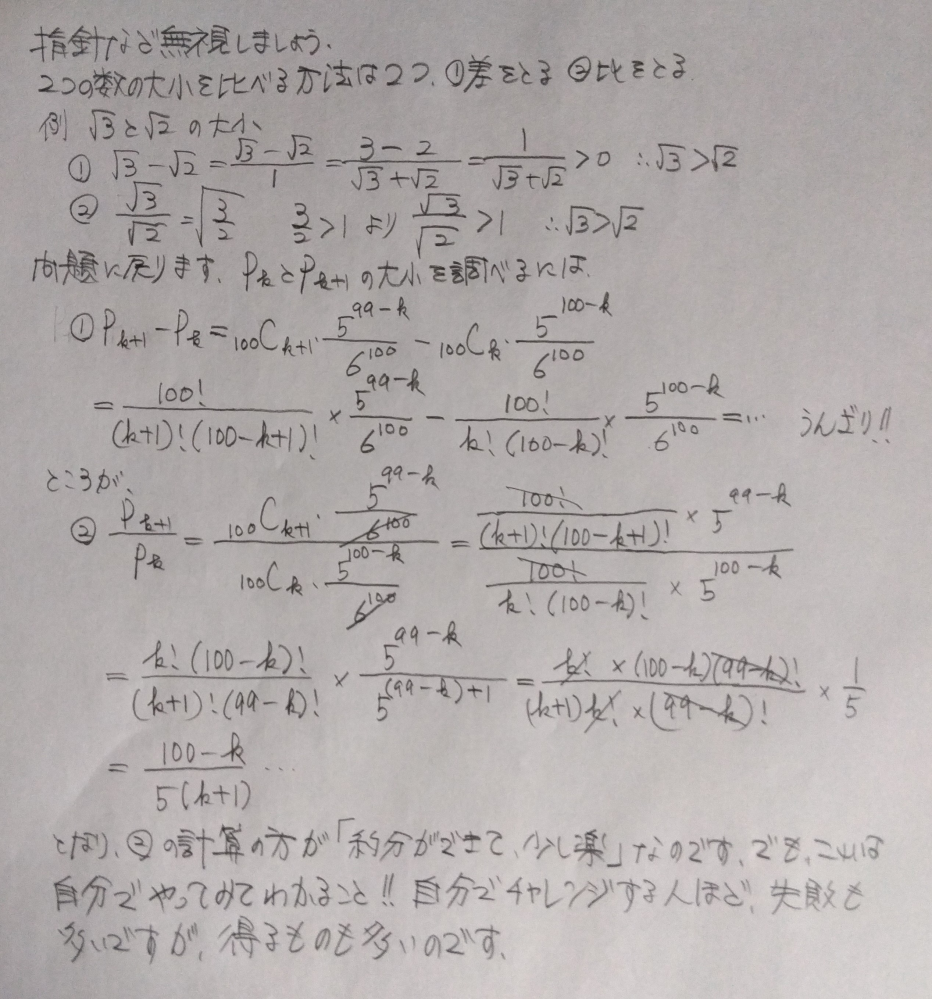 指針など無視しましょう.
2つの数の大小を比べる方法は2つ. ①差をとる ②比をとる.
例 √3と√2 の大小
① √3-√2 = (√3-√2)/1 = (3-2)/(√3+√2) = 1/(√3+√2) > 0 ∴√3>√2
② √3/√2 = √(3/2) 3/2>1 より √3/√2 >1 ∴√3>√2
問題に戻ります. P_kとP_{k+1} の大小を調べるには.
① P_{k+1}-P_k = ₁₀₀C_{k+1}・5^{99-k}/6^{100} - ₁₀₀C_k・5^{100-k}/6^{100}
= 100!/((k+1)!(100-k+1)!) × 5^{99-k}/6^{100} - 100!/(k!(100-k)!) × 5^{100-k}/6^{100} = … うんざり!!
ところが,
② P_{k+1}/P_k = (₁₀₀C_{k+1}・5^{99-k}/6^{100})/(₁₀₀C_k・5^{100-k}/6^{100}) = (100!/((k+1)!(100-k+1)!) × 5^{99-k})/(100!/(k!(100-k)!) × 5^{100-k})
= k!(100-k)!/((k+1)!(99-k)!) × 5^{99-k}/5^{(99-k)+1} = (k!×(100-k)(99-k)!)/((k+1)k!×(99-k)!) × 1/5
= (100-k)/(5(k+1)) …
となり, ②の計算の方が「約分ができて、少し楽」なのです. でも, これは
自分でやってみてわかること!! 自分でチャレンジする人ほど, 失敗も
多いですが, 得るものも多いのです.